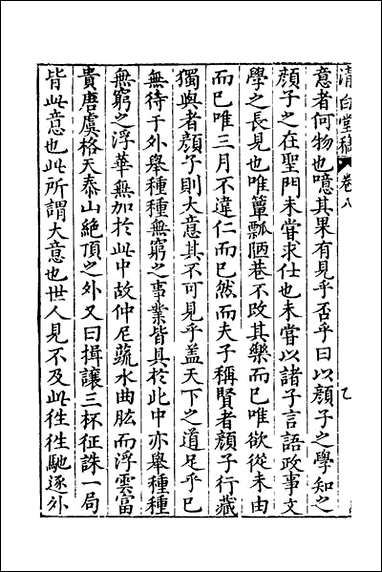 清白堂稿 卷八
意者何物也噫其果有見乎否乎曰以顏子之學知之
顏子之在聖門未嘗求仕也未嘗以諸子言語政事文
學之長見也唯簞瓢陋巷不改其樂而已唯欲從末由
而已唯三月不違仁而已然而夫子稱賢者顏子行藏
獨與者顏子則大意其不可見乎盖天下之道足乎已
無待于外舉種種無窮之事業皆具於此中亦舉種種
無窮之浮華無加於此中故仲尼蔬水曲肱而浮雲富
貴唐虞格天泰山絶頂之外又曰揖讓三杯征誅一局
皆此意也此所謂大意也世人見不及此徃徃馳逐外